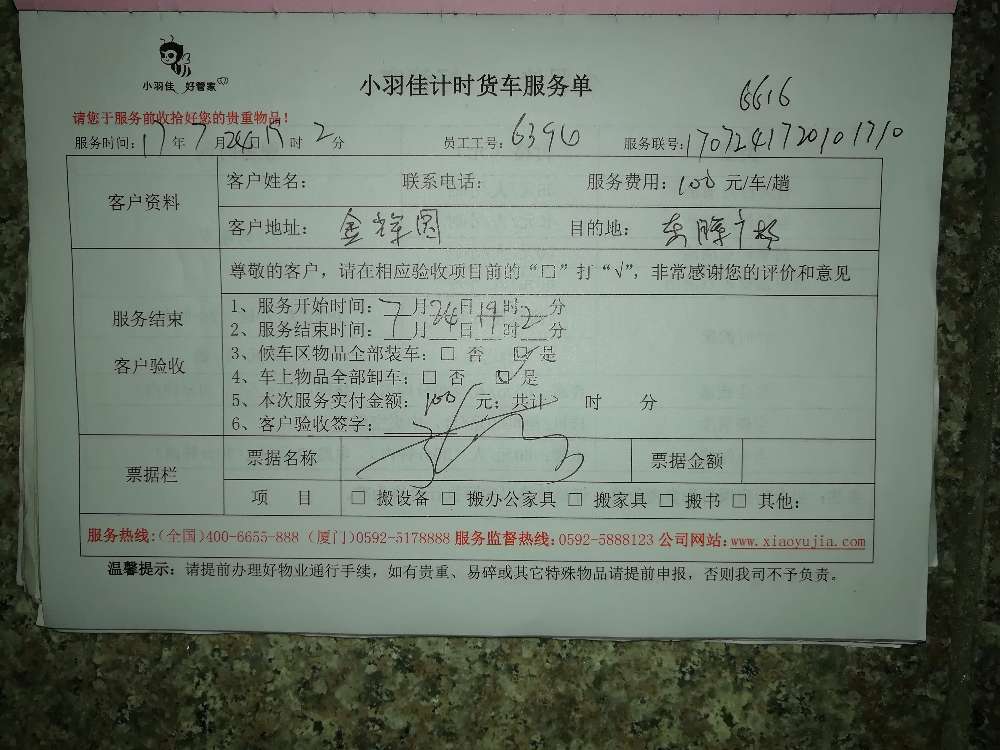 小羽佳 好管家
小羽佳计时货车服务单
6616
请您于服务前收拾好您的贵重物品！
服务时间：17年7月24日17时2分 员工工号：6396 服务联号：1707241720101710
客户资料
客户姓名： 联系电话： 服务费用：100元/车/趟
客户地址：金辉园 目的地：东晖广场
服务结束
客户验收
尊敬的客户，请在相应验收项目前的“□”打“√”，非常感谢您的评价和意见
1、服务开始时间：7月24日19时2分
2、服务结束时间：__月__日__时__分
3、候车区物品全部装车：□ 否 ☑是
4、车上物品全部卸车：□ 否 ☑是
5、本次服务实付金额：100元；共计 时 分
6、客户验收签字：
票据栏
票据名称 票据金额
项 目 □ 搬设备 □ 搬办公家具 □ 搬家具 □ 搬书 □ 其他：
服务热线：(全国)400-6655-888 (厦门)0592-5178888 服务监督热线：0592-5888123 公司网站：www.xiaoyujia.com
温馨提示：请提前办理好物业通行手续，如有贵重、易碎或其它特殊物品请提前申报，否则我司不予负责。